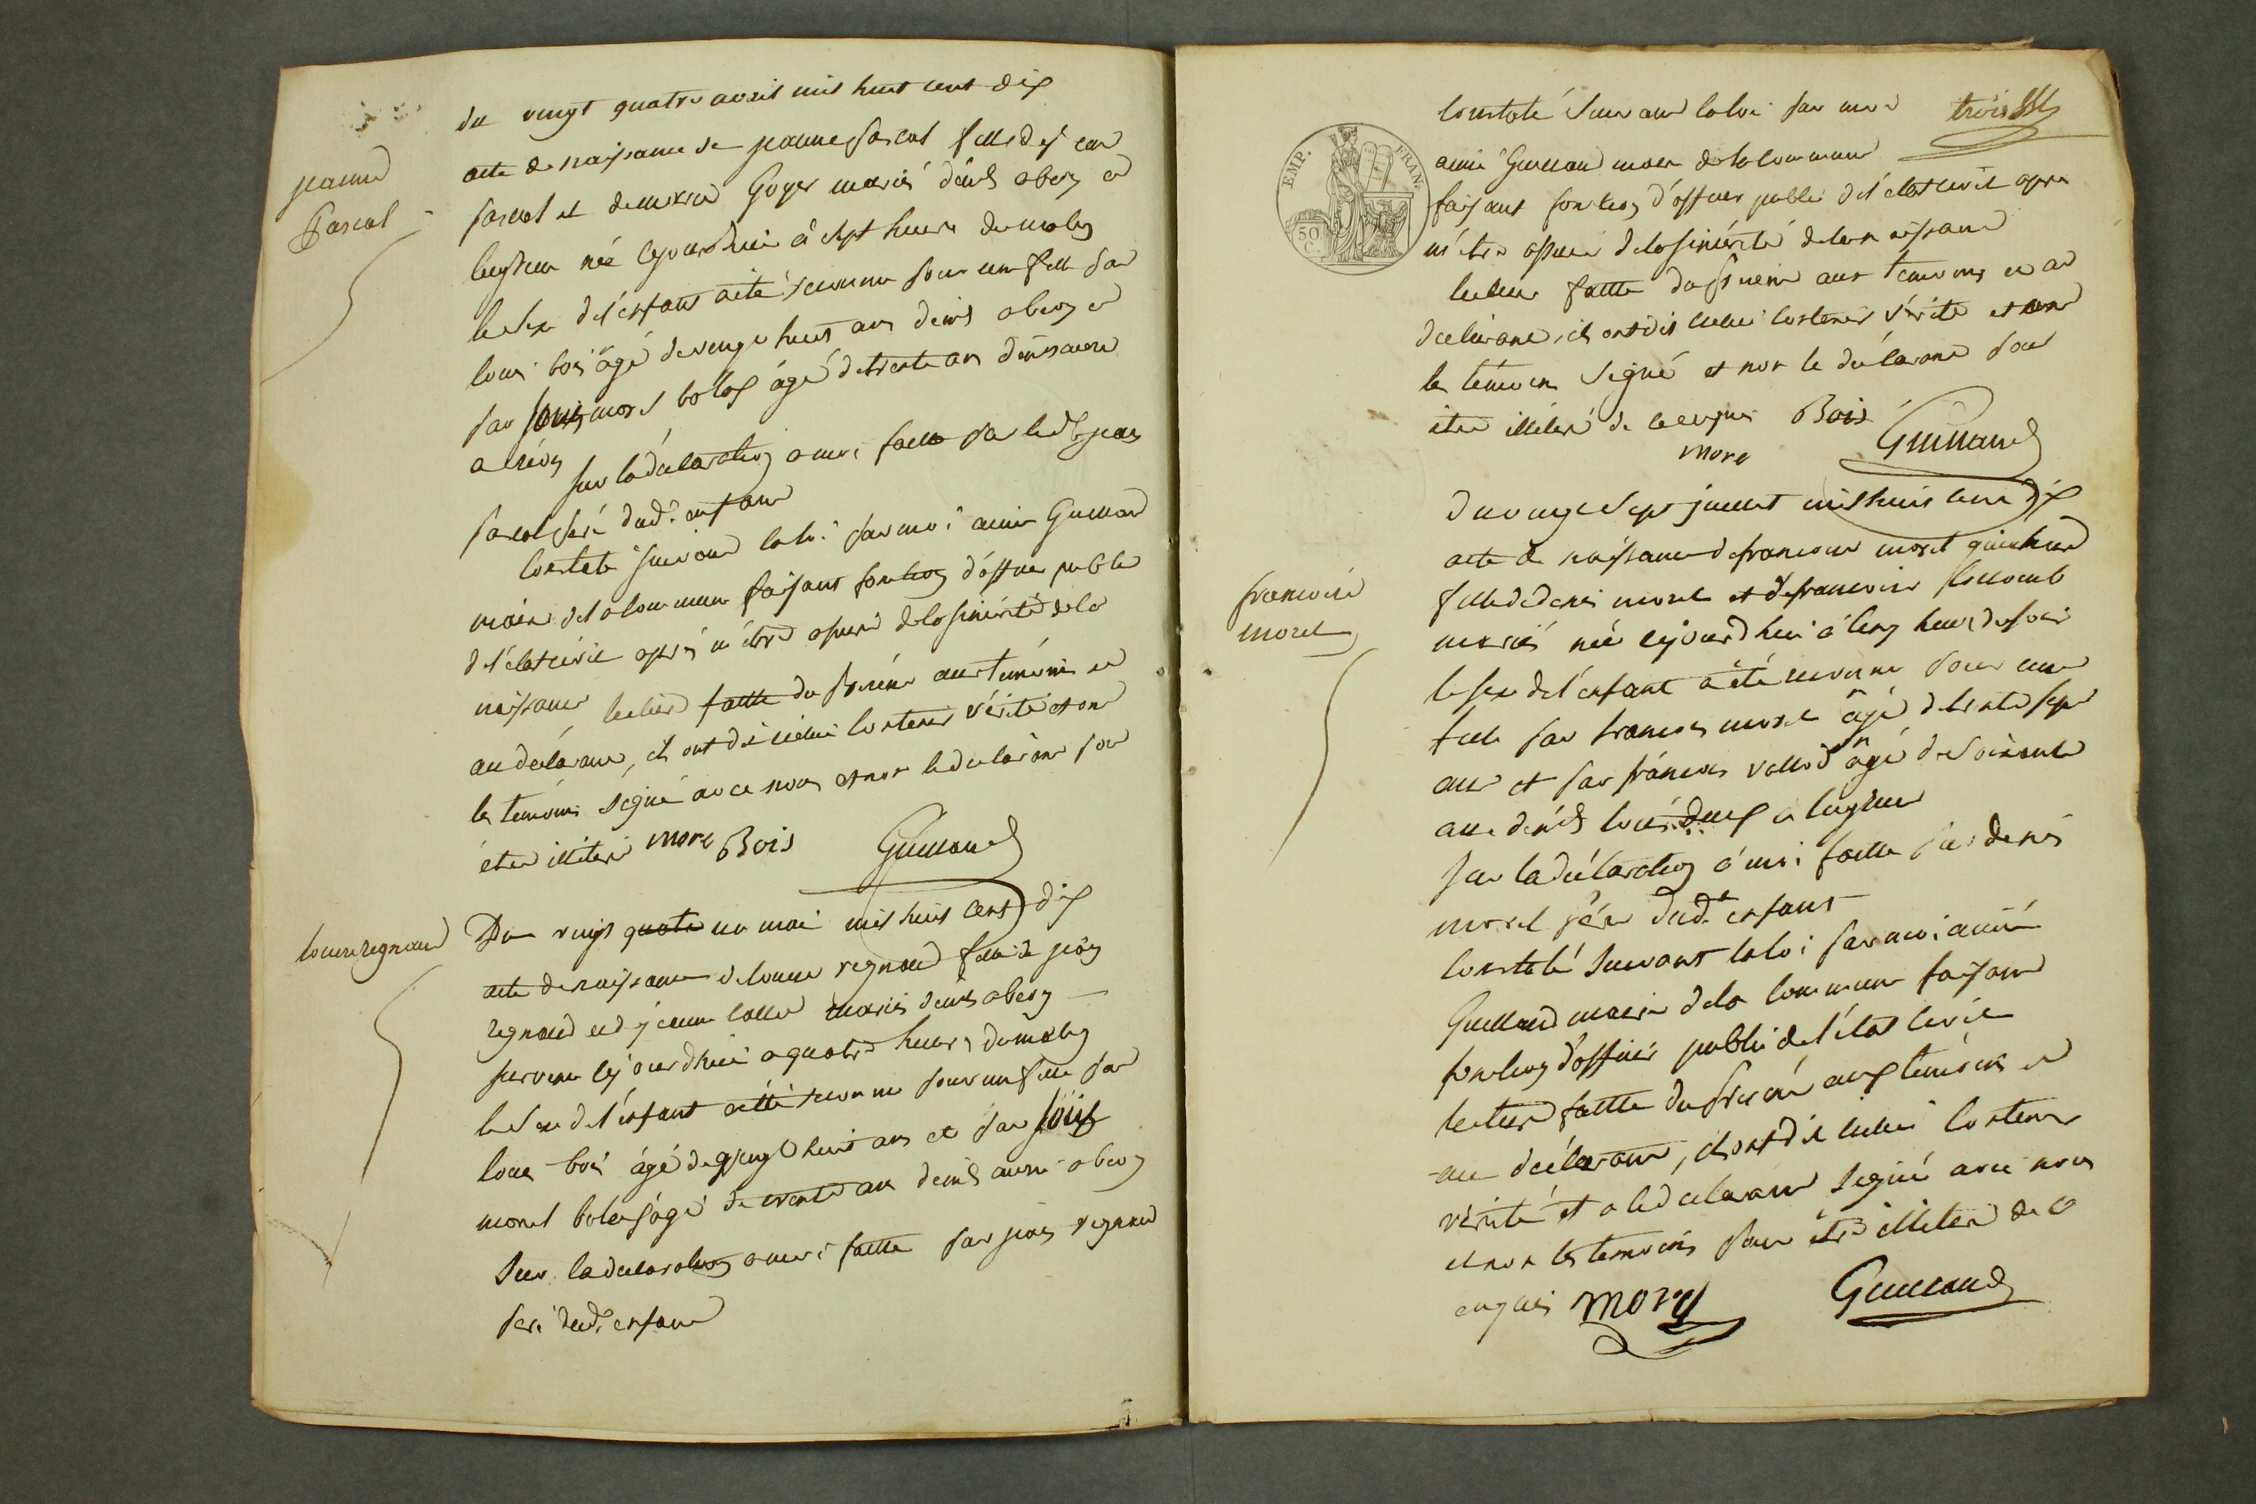 du vingt quatre avril mil huit cent dix
jeanne
Pascal
acte de naissance de jeanne pascal fille de jean
pascal et de marie Goyer mariés dem.ts a bery et
née cejourdhui à sept heures du matin
le sexe de l'enfant a été reconnu pour une fille par
louis bois âgé de vingt huit ans dem.t a bery et
par louis morel bolas âgé de trente ans
sur la déclaration a moi faitte par led.t jean
pascal peré dud.t enfant
Constaté suivant la loi par moi aimé Guilland
maire de la commune faisant fonction d'officier public
de l'état civil après m'être assuré de la sincérité de la
naissance lecture faitte du présent aux témoins et
au déclarant, ils ont dit icelui contenir vérité et ont
les témoins signé avec nous et non le déclarant pour
être illiteré morel Bois Guilland
louise regnaud
Du vingt quatre un mai mil huit cent dix
acte de naissance de louise regnaud fille de jean
regnaud et de jeanne mariés dem.ts a bery
survenue cejourdhui a quatre heures du matin
le sexe de l'enfant a été reconnu pour une fille par
louis bois âgé de vingt huit ans et par louis
morel bolas âgé de trente ans dem.ts aussi a bery
Sur la déclaration a moi faitte par jean regnaud
peré dud.t enfant
EMP. FRAN.
50 C.
troisse
Constaté suivant la loi par moi
aimé Guilland maire de la commune
faisant fonction d'officier public de l'état civil après
m'être assuré de la sincérité de la naissance
lecture faitte du présent aux temoins et au
declarant, ils ont dit icelui contenir vérité et ont
les temoins signé et non le déclarant pour
être illiteré de ce enquis Bois
morel Guilland
françoise
morel
du vingt sept juillet mil huit cent dix
acte de naissance de françoise morel
fille de denis morel et de françoise
mariés née cejourdhui à cinq heures du soir
le sexe de l'enfant a été reconnu pour une
fille par françois morel âgé de trente sept
ans et par françois âgé de soixante
ans dem.ts tous deux a
sur la déclaration à moi faitte par denis
morel père dud.t enfant
Constaté suivant la loi par moi aimé
Guilland maire de la commune faisant
fonction d'officier public de l'état civil
lecture faitte du présent aux temoins et
au déclarant, ils ont dit icelui contenir
vérité et a le declarant signé avec nous
et non les temoins pour être illiteré de ce
enquis morel Guilland